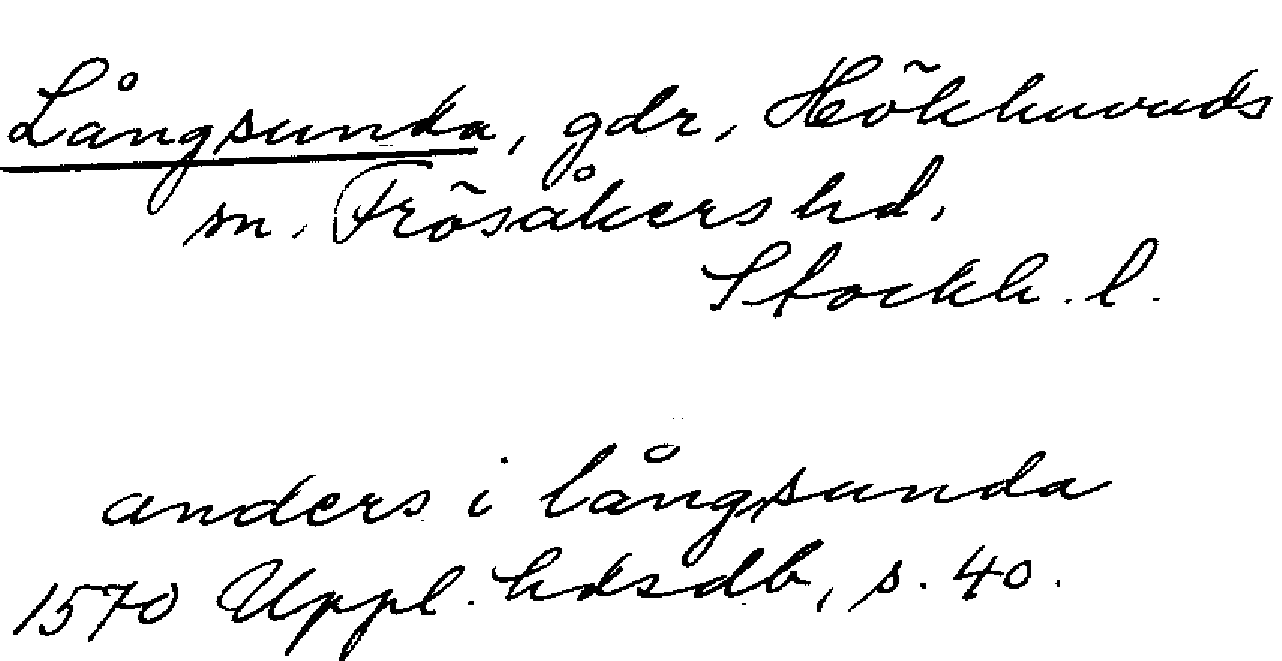 Långsunda, gdr, Hökhuvuds
sn. Frösåkers hd.
Stockh. l.
anders i långsunda
1570 Uppl. hdsdb, s. 40.